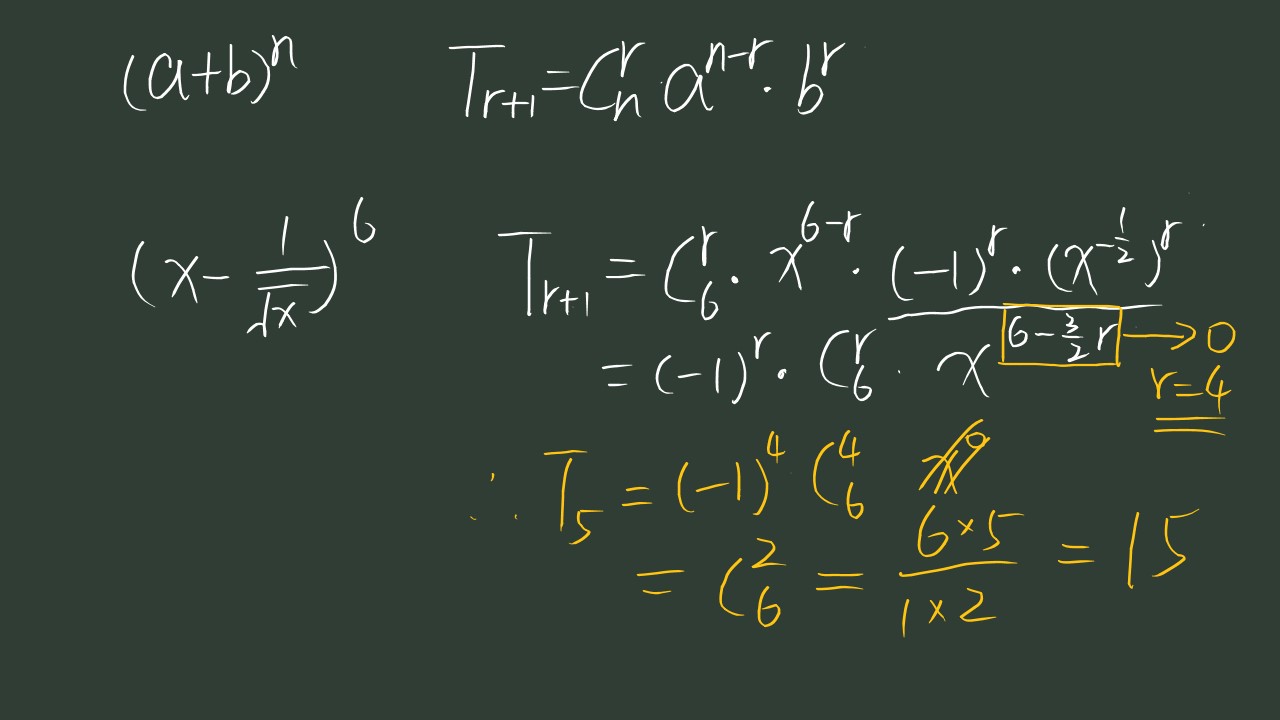 (a+b)^n T_{r+1}=C_n^r a^{n-r}·b^r
(x-\frac{1}{\sqrt{x}})^6 T_{r+1}=C_6^r·x^{6-r}·(-1)^r·(x^{-\frac{1}{2}})^r
=(-1)^r·C_6^r·x^{6-\frac{3}{2}r}→0
r=4
∴T_5=(-1)^4 C_6^4 x^0
=C_6^2=\frac{6×5}{1×2}=15